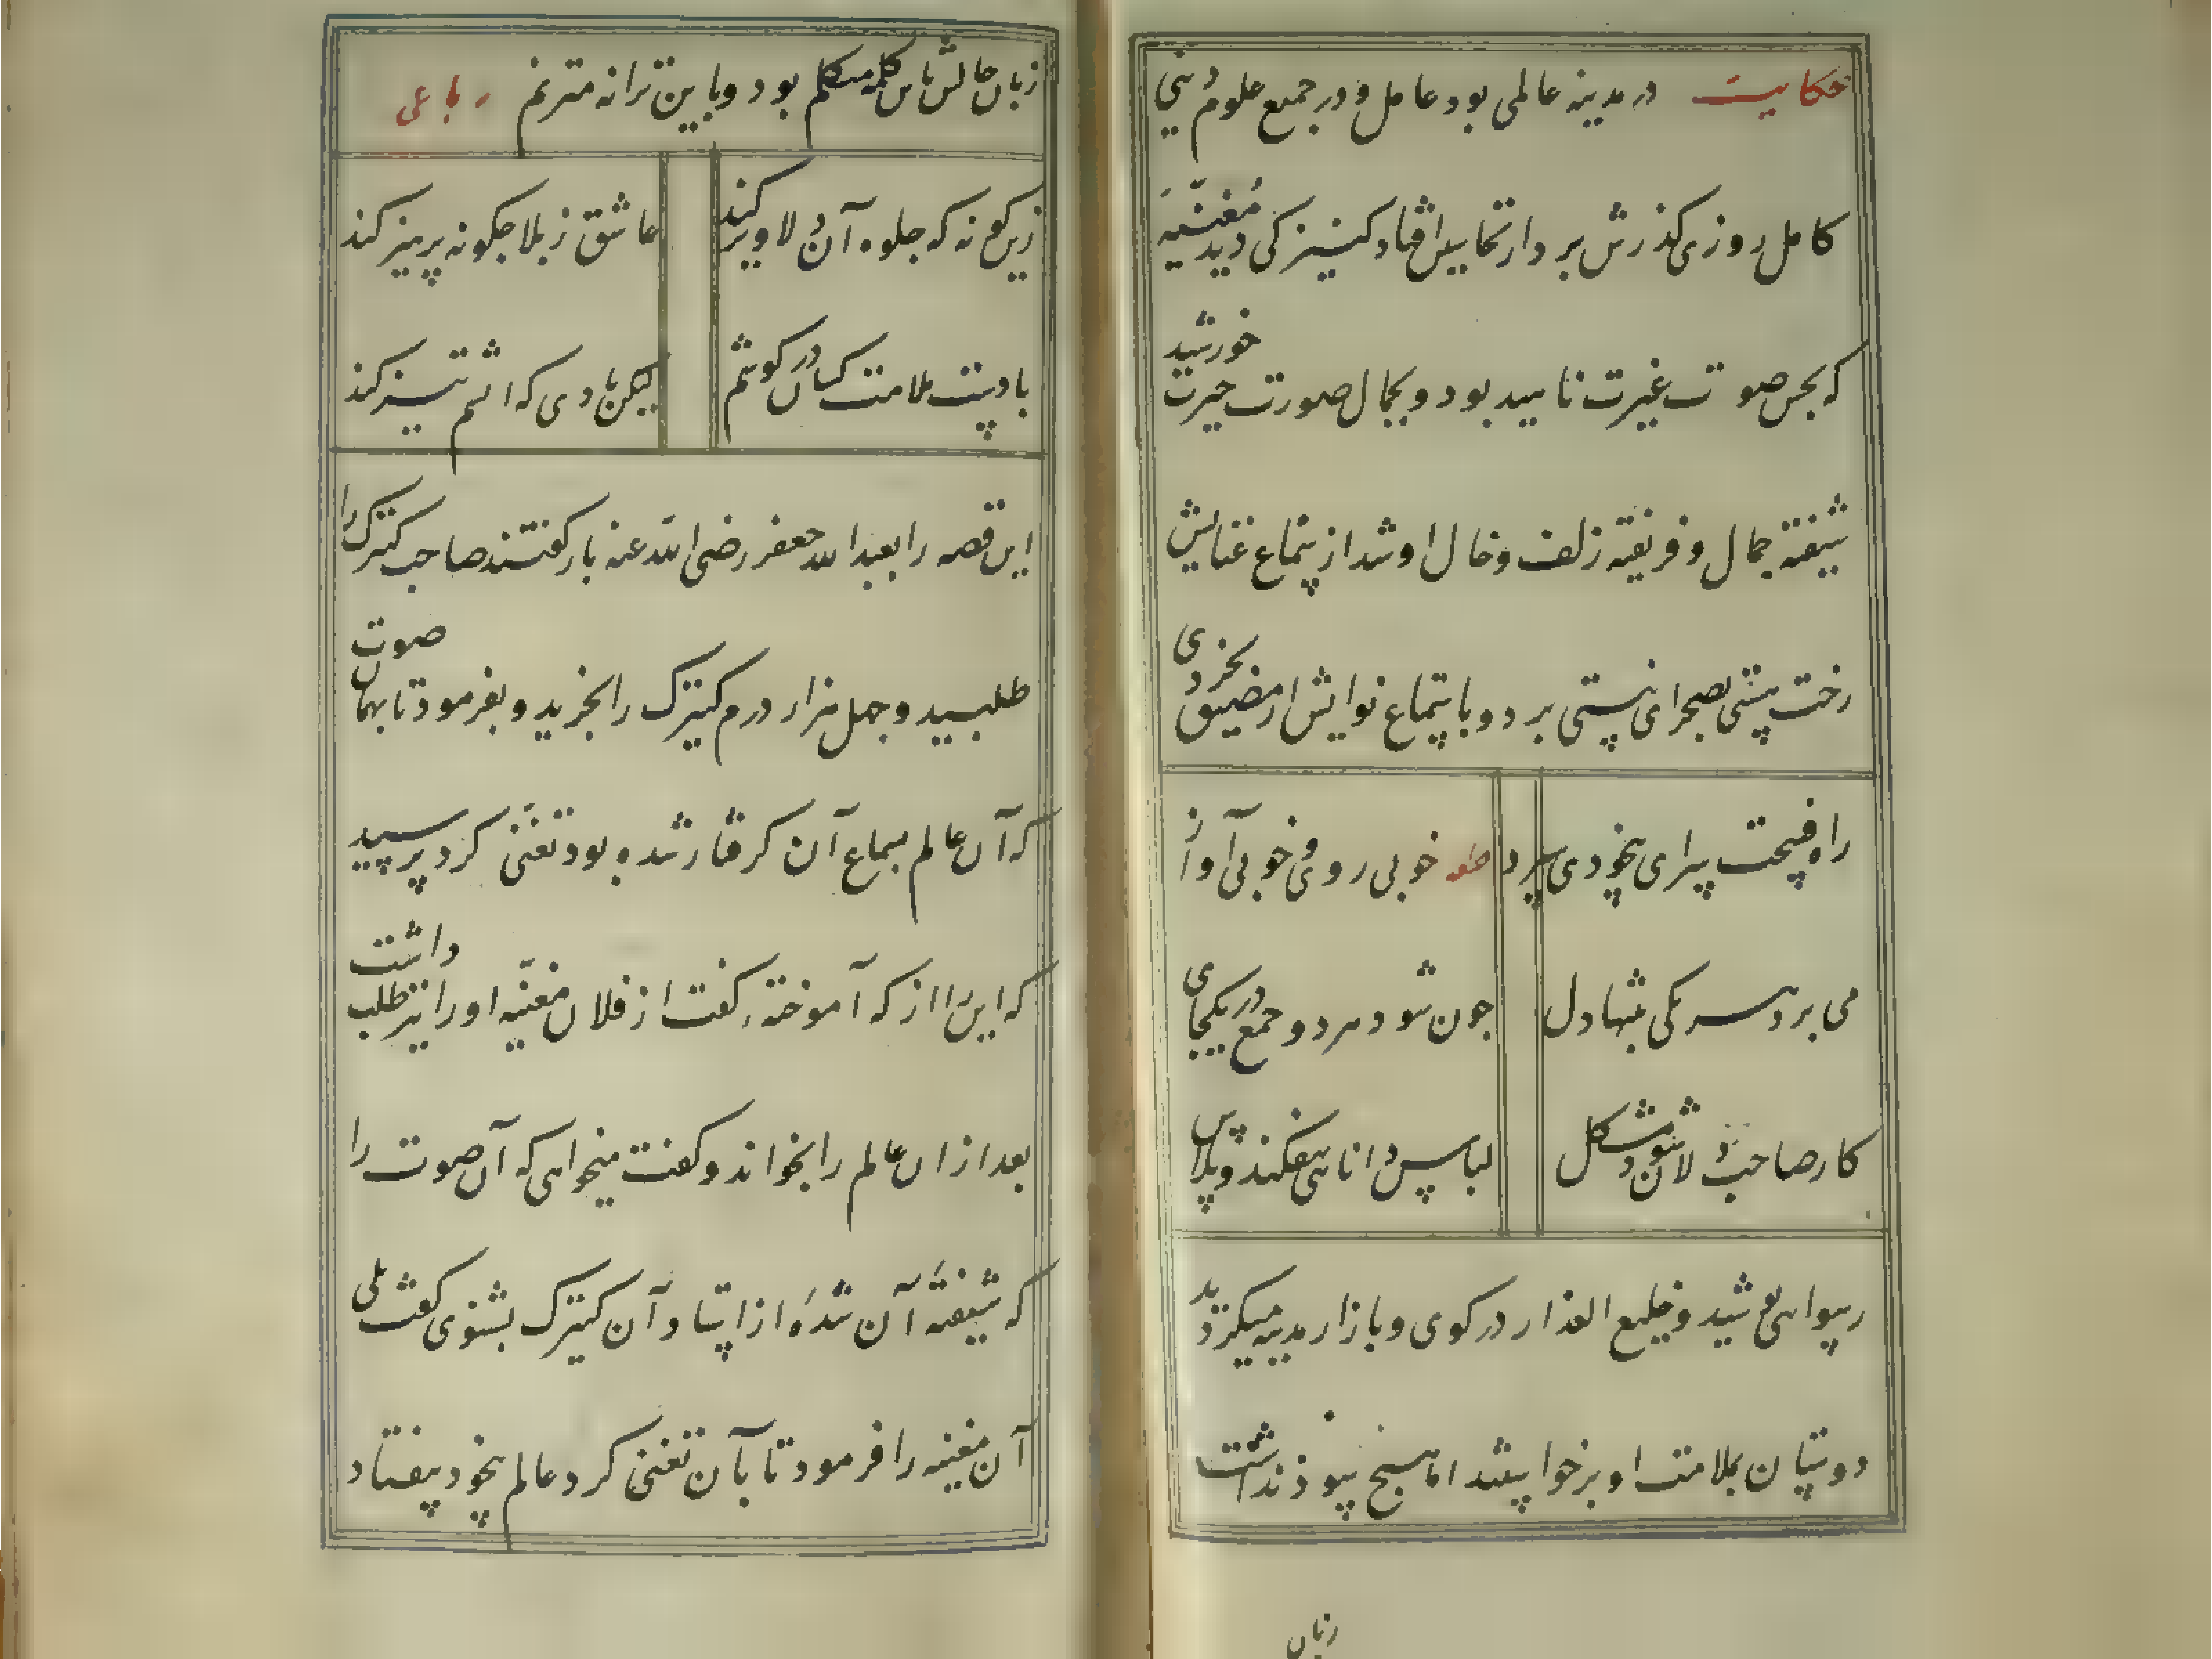 حکایت در مدینه عالمی بود عامل و در جمیع علوم دینی
کامل روزی گذرش بر دار نخاسین افتاد کنیزکی دید مغنیه
که بحسن صوت غیرت ناهید بود و بجمال صورت حیرت خورشید
شیفته جمال و فریفته زلف و خال او شد از سماع غنایش
رخت هستی بصحرای نیستی برد و باستماع نوایش از مضیق بخردی
راه فسحت سرای بیخودی سپرد
خوبی روی و خوبی آواز
می برد هر یکی بتنها دل
چون شود هر دو جمع در یکجای
کار صاحب دلان شود مشکل
لباس دانائی بیفکند و پلاس
رسوائی پوشید و خلیع العذار در کوی و بازار مدینه میکردید
دوستان بملامت او برخواستند اما هیچ سود نداشت
زبان
زبان حالش باین کلمه متکلم بود و باین ترانه مترنم رباعی
زین گونه که جلوه آن دلاویز کند
عاشق ز بلا چگونه پرهیز کند
بادیست ملامت کسان در گوشم
لیکن بادی که آتشم تیز کند
این قصه را بعبدالله جعفر رضی الله عنه باز گفتند صاحب کنیزک را
طلبید و چهل هزار درم کنیزک را بخرید و بفرمود تا بهمان صوت
که آن عالم بسماع آن گرفتار شده بود تغنی کرد پرسید
که این را از که آموخته گفت از فلان مغنیه او را نیز طلب داشت
بعد از ان عالم را بخواند و گفت میخواهی که آن صوت را
که شیفته آن شده از استاد آن کنیزک بشنوی گفت بلی
آن مغنیه را فرمود تا بآن تغنی کرد عالم بیخود بیفتاد